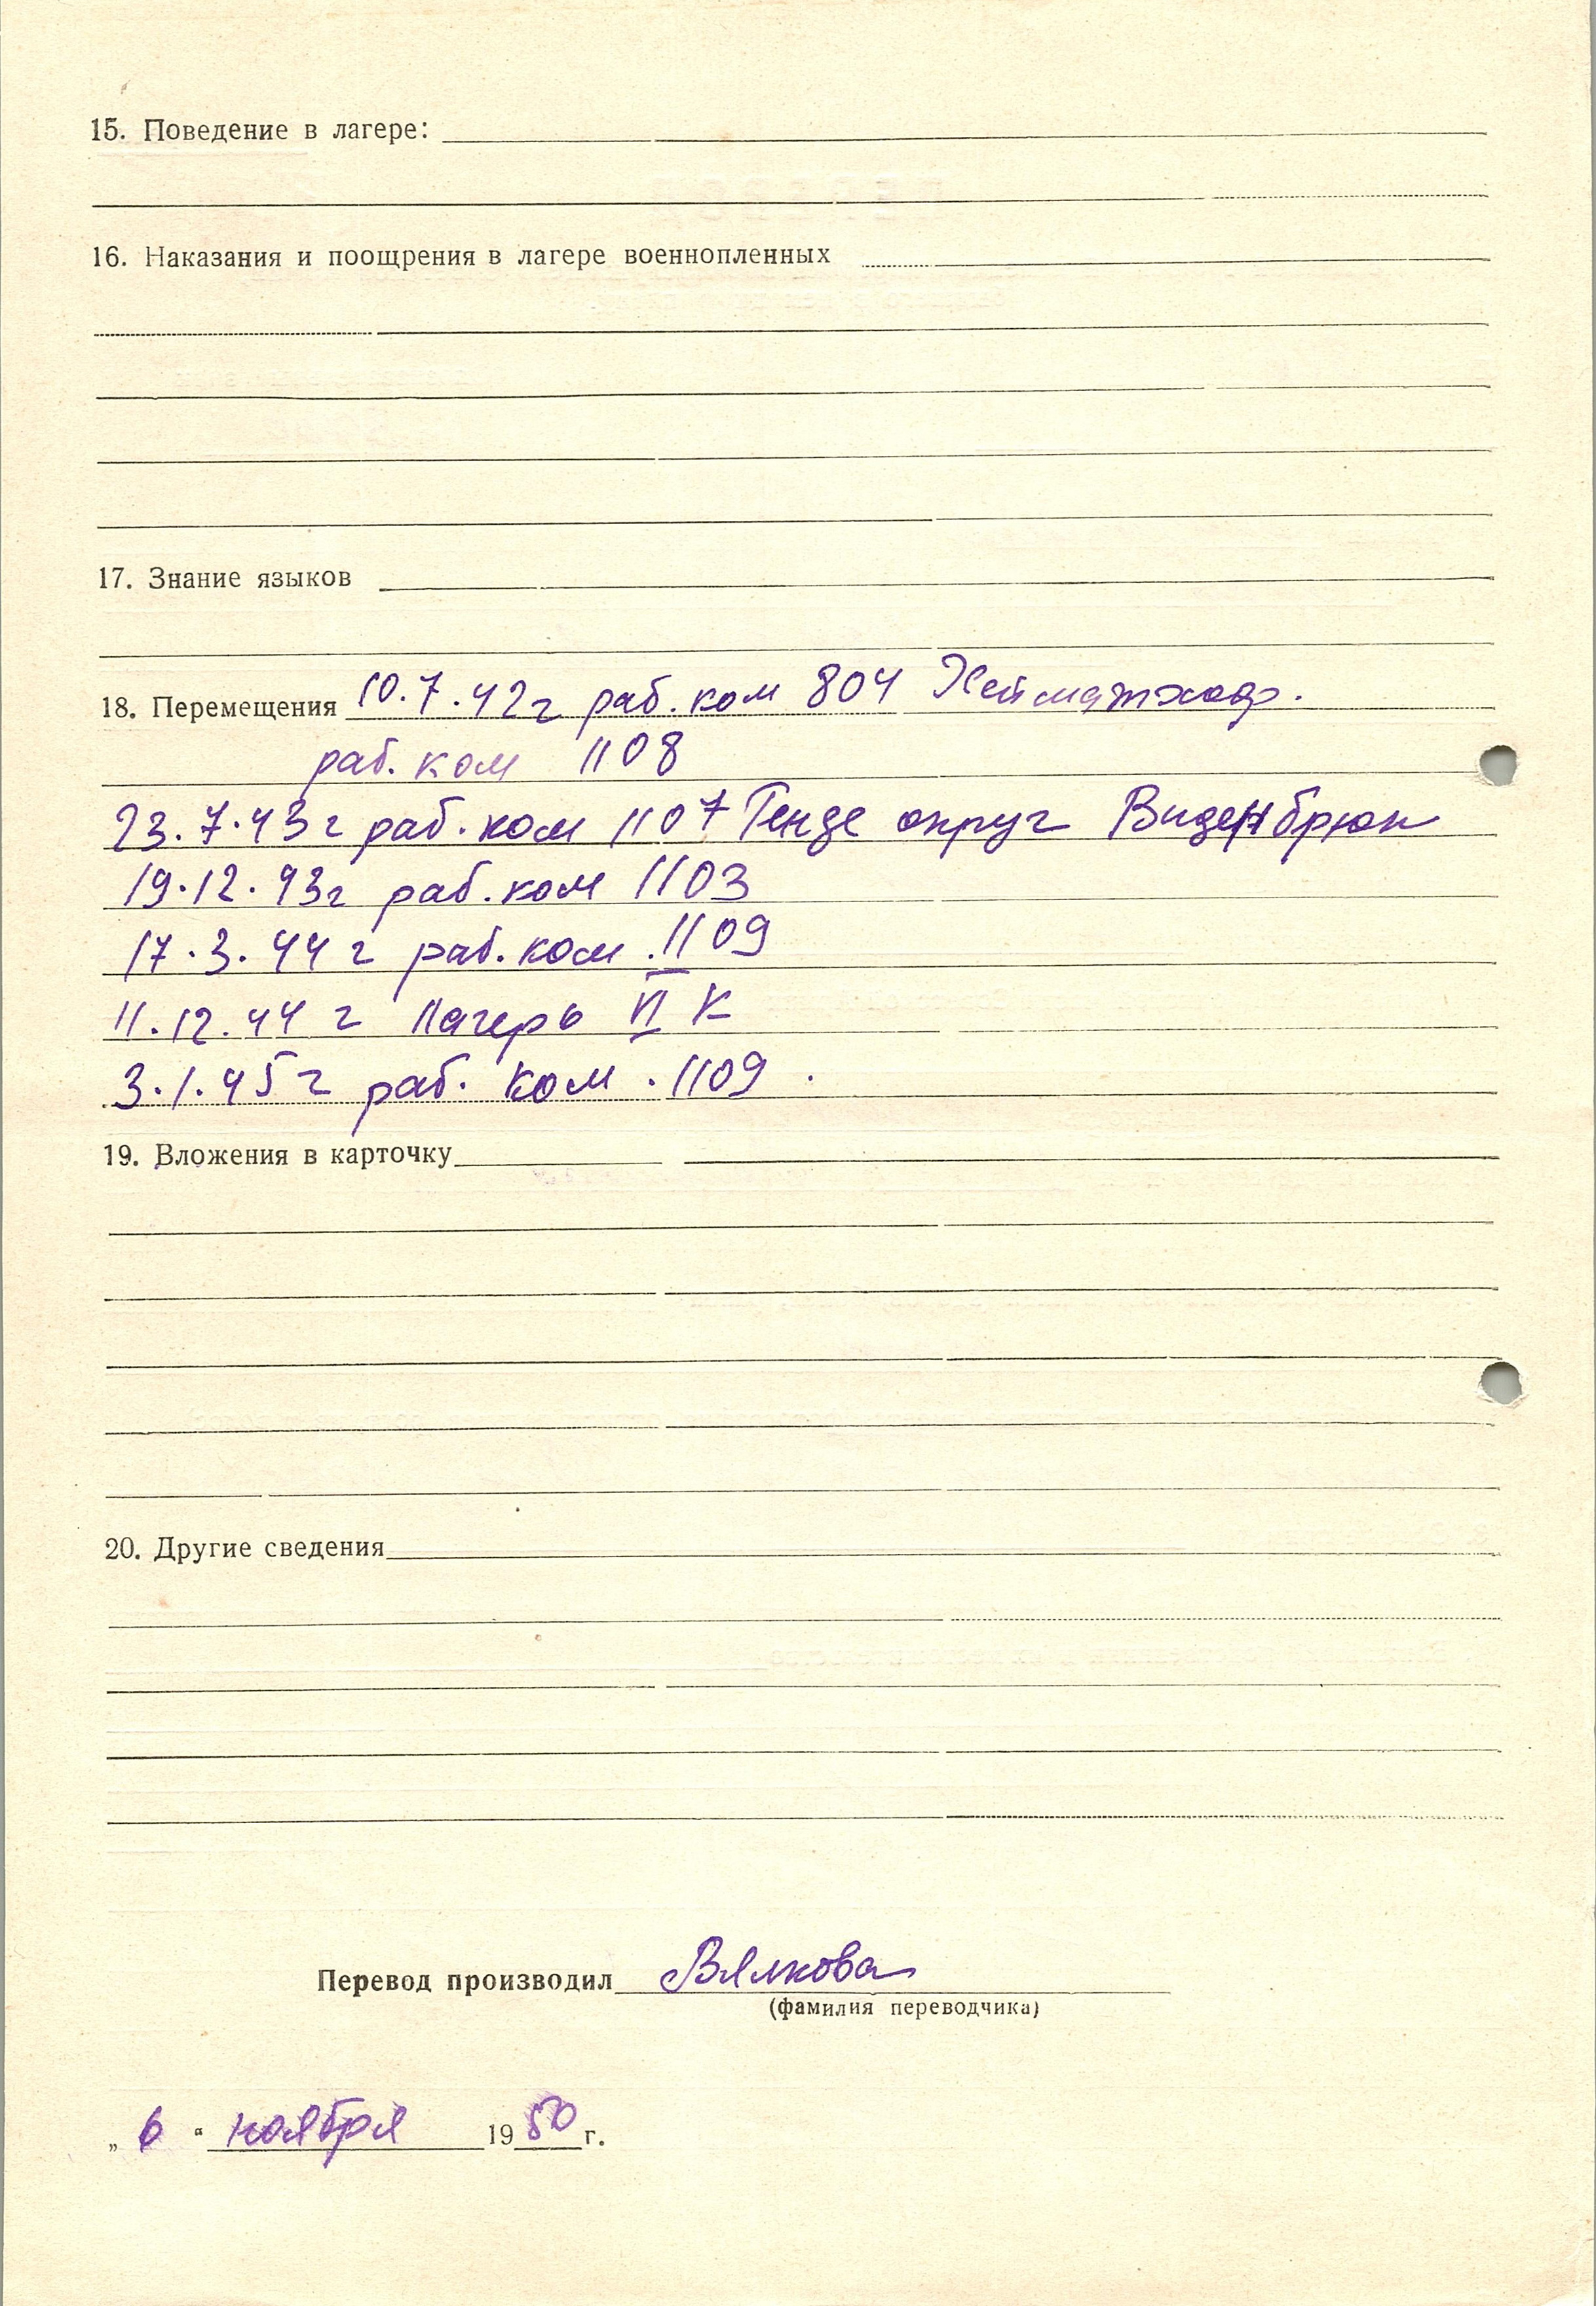 15. Поведение в лагере:
16. Наказания и поощрения в лагере военнопленных
17. Знание языков
18. Перемещения 10.7.42г раб. ком 804 Хейматхоф.
раб. ком 1108
23.7.43г раб. ком 1107 Генде округ Виденбрюк
19.12.43г раб. ком 1103
17.3.44 г раб. ком. 1109
11.12.44 г Лагерь VI К
3.1.45 г раб. ком. 1109.
19. Вложения в карточку
20. Другие сведения
Перевод производил Вялкова
(фамилия переводчика)
„ 6 “ ноября 1950 г.